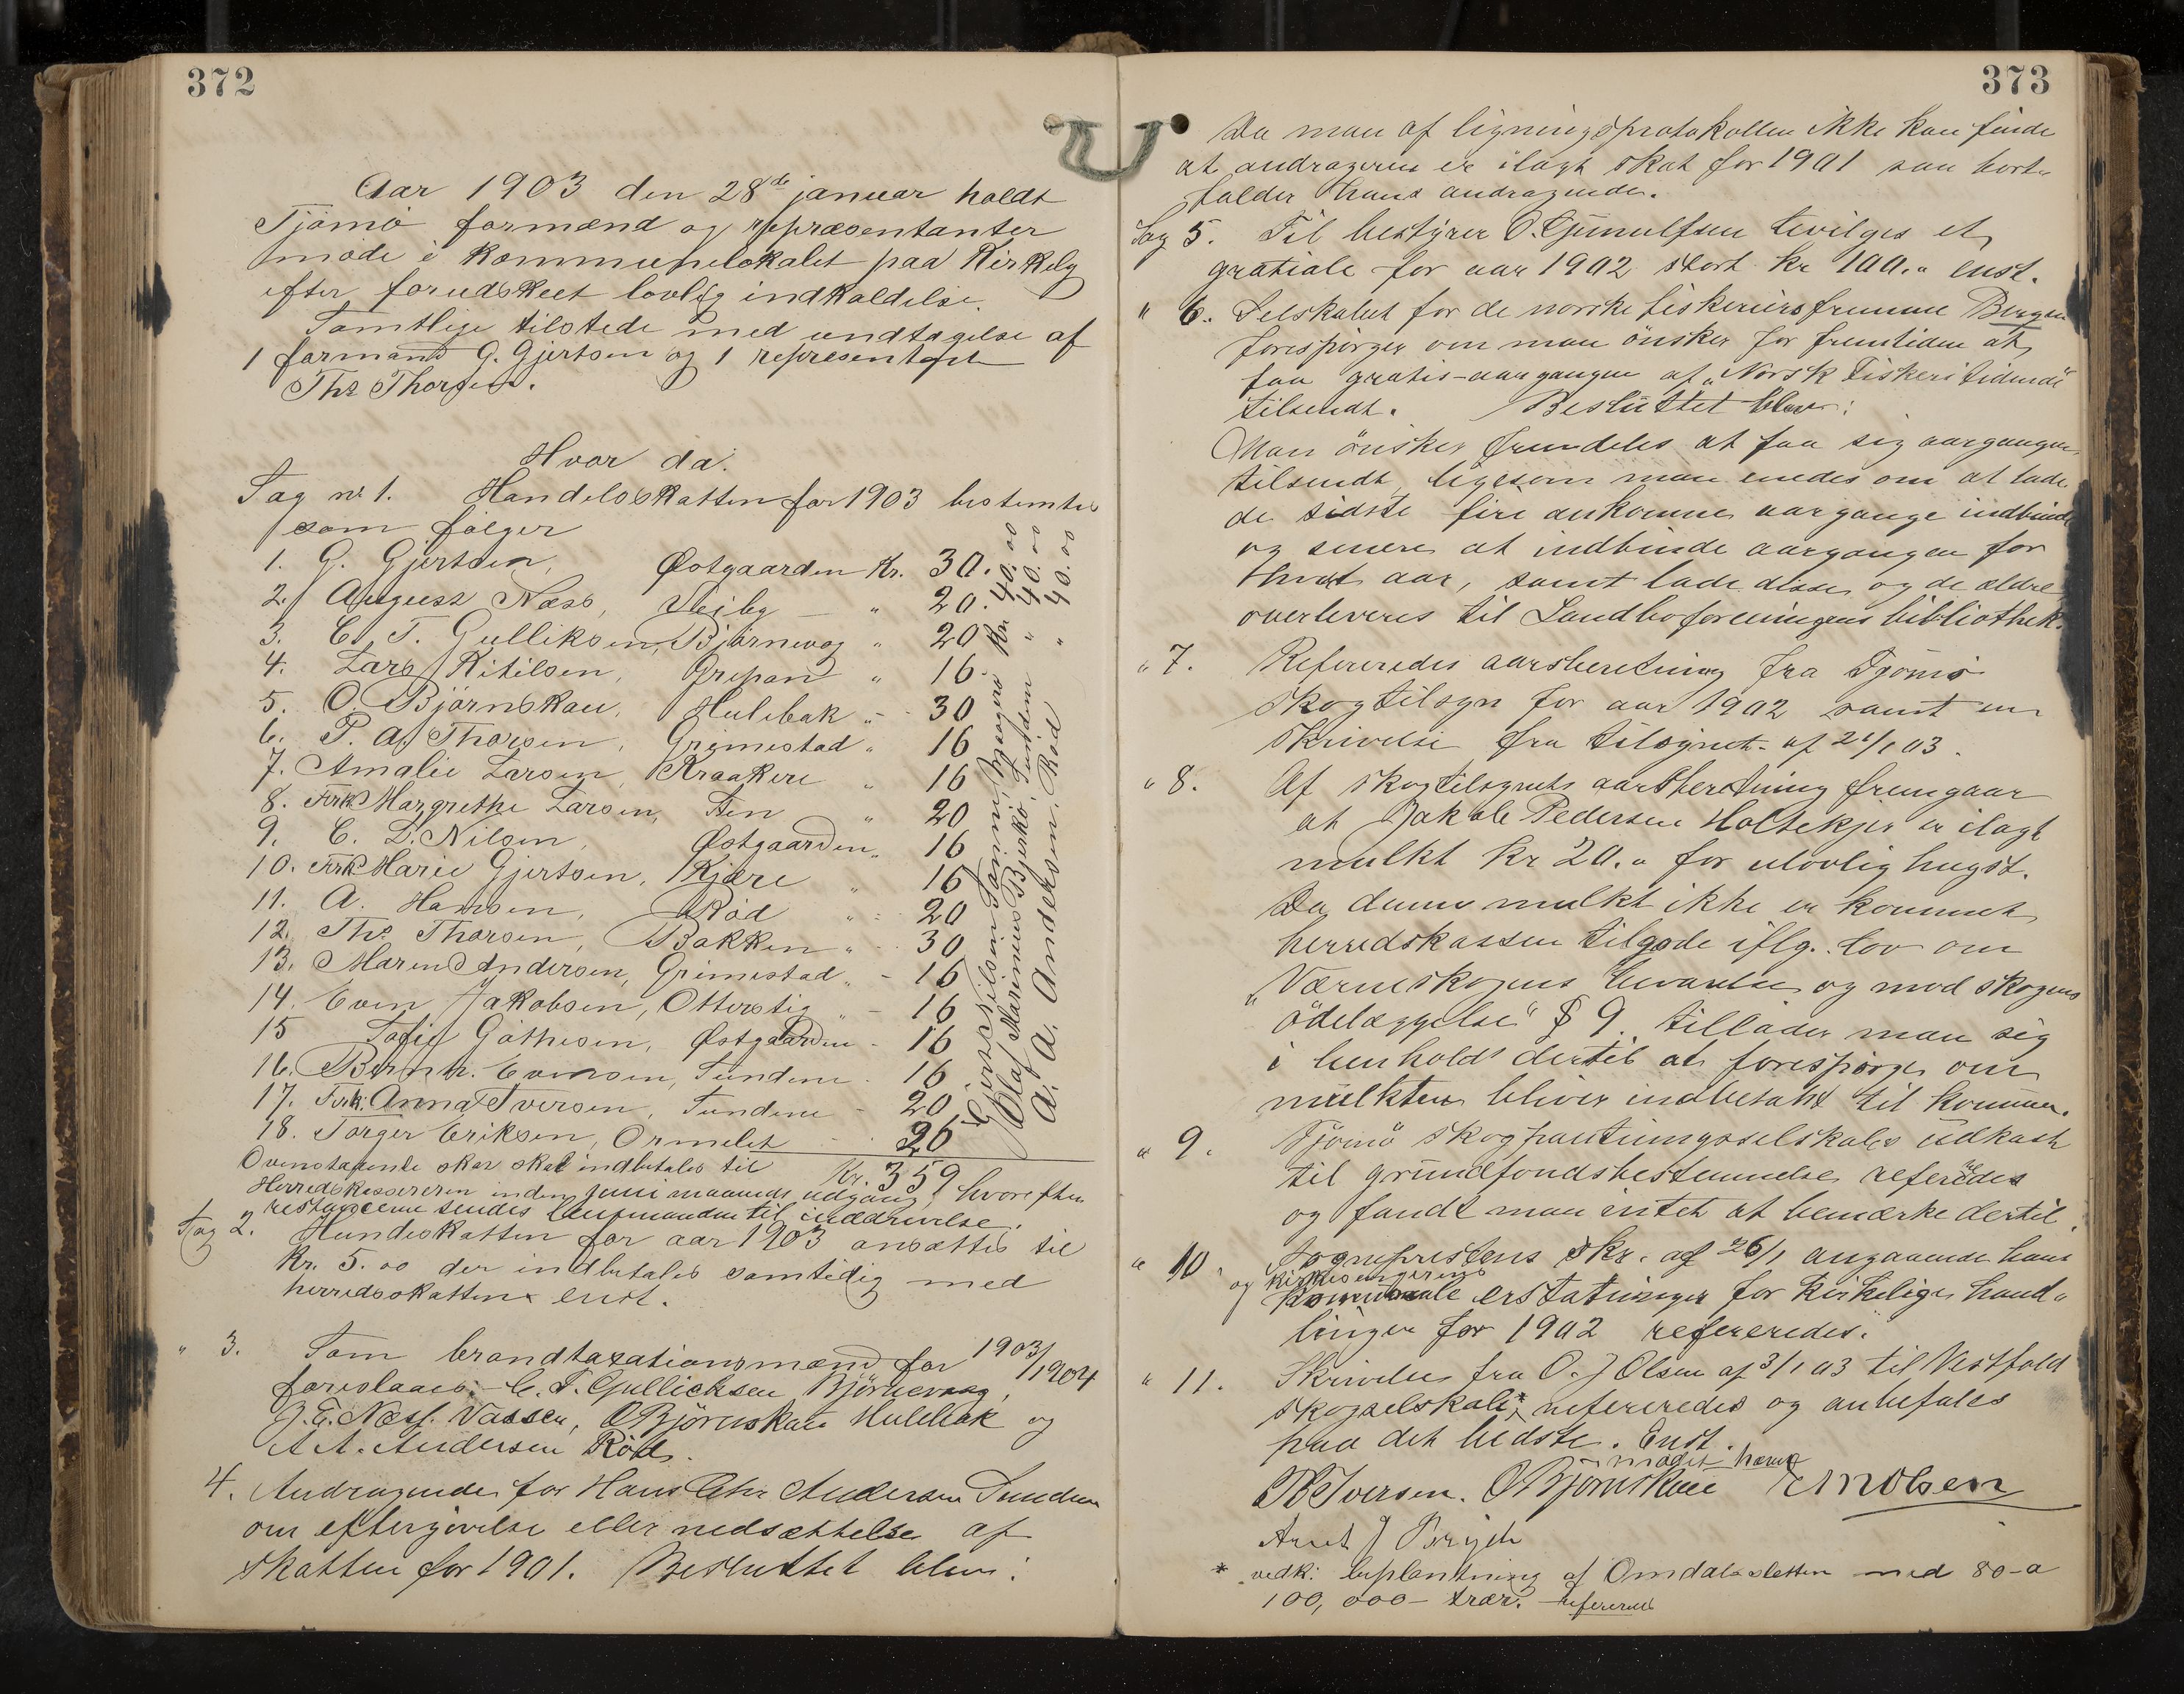 372
Aar 1903 den 28de januar holdt
Tjømø formænd og repræsentanter
møde i Kommunelokalet paa Kirkely
efter forudskeet lovlig indkaldelse.
Samtlige tilstede med undtagelse af
1 formand G. Gjertsen og 1 representant
Ths Thorsen.
Hvor da.
Sag nr 1. Handelsskatten for 1903 bestemtes
som følger
1. G. Gjertsen, Østgaarden Kr. 30.
2. August Næss, Veiby " 20.
3. C. F. Gulliksen, Bjørnevag " 20
4. Lars Kitilsen, Grepan " 16
5. O. Bjørnskau, Hulebak " 30
6. P. A. Thorsen, Grimestad " 16
7. Amalie Larsen, Kraakere " 16
8. Frk. Margrethe Larsen, Sten " 20
9. C. L. Nilsen, Østgaarden " 16
10. Frk. Marie Gjertsen, Kjære " 15
11. A. Hansen, Rød " 20
12. Ths Thorsen, Bakken " 30
13. Maren Andersen, Grimestad " 16
14. Even Jakobsen, Otterstig " 16
15 Sofie Gathesen, Østgaarden - 16
16. Bernh. Evensen, Sundene - 16
17. Frk. Anna Iversen, Sundene - 20
18. Torger Eriksen, Ormelet - 26
Kr. 359
Kr. 40.00
Olaf Marinius Bjerkø, Sundene " 40.00
A. A. Andersen, Rød " 40.00
Ovenstaaende skat skal indbetales til
Herredskassereren inden juni maaneds udgang, hvorefter
restancerne sendes lensmanden til inddrivelse.
Sag 2. Hundeskatten for aar 1903 ansættes til
Kr. 5.00 der indbetales samtidig med
herredsskatten enst.
" 3. Som brandtaxationsmænd for 1903/1904
foreslaaes: C. F. Gullichsen Bjørnevaag,
J. E. Næss. Vassen, O Bjørnskau Hulebak og
A A. Andersen Rød.
4. Andragende for Hans Chr Andersen Sundene
om eftergivelse eller nedsættelse af
skatten for 1901. Besluttet blev:
373
Da man af ligningsprotokollen ikke kan finde
at andrageren er ilagt skat for 1901 saa bort-
falder hans andragende.
Sag 5. Til bestyrer O. Gunnulfsen bevilges et
gratiale for aar 1902 stort kr 100." enst.
" 6. Selskabet for de norske fiskeriers fremme Bergen
forespørger om man ønsker for fremtiden at
faa gratis-aargangen af "Norsk Fiskeritidende"
tilsendt. Besluttet blev:
Man ønsker fremdeles at faa sig aargangen
tilsendt, ligesom man enedes om at lade
de sidste fire ankomne aargange indbinde
og senere at indbinde aargangen for
hvert aar, samt lade disse og de ældre
overleveres til Landboforeningens bibliothek.
" 7. Refereredes aarsberetning fra Tjømø
skogtilsyn for aar 1902 samt en
skrivelse fra tilsynet af 21/1 03.
" 8. Af skogtilsynets aarsberetning fremgaar
at Jakob Pedersen Holtekjær er ilagt
mulkt kr 20." for ulovlig hugst.
Da denne mulkt ikke er kommet
herredskassen tilgode iflg. lov om
"Værneskogens bevarelse og mod skogens
ødelæggelse" § 9. tillader man sig
i henhold dertil at forespørge om
mulkten bliver indbetalt til kommunen.
" 9. Tjømø skogplantningsselskabs udkast
til grundfondsbestemmelse refereredes
og fandt man intet at bemærke dertil.
" 10. Sogneprestens skr. af 26/1 angaaende hans
og kirkesangerens
Kommunale erstatninger for kirkelige hand-
linger for 1902 refereredes.
" 11. Skrivelse fra O. J Olsen af 3/1 03 til Vestfold
skogselskab* refereredes og anbefales
paa det bedste. Enst.
mødet hævet
O Bjørnskau
* vedk: beplantning af Omdalssletten med 80-a
100,000 trær. refereredes